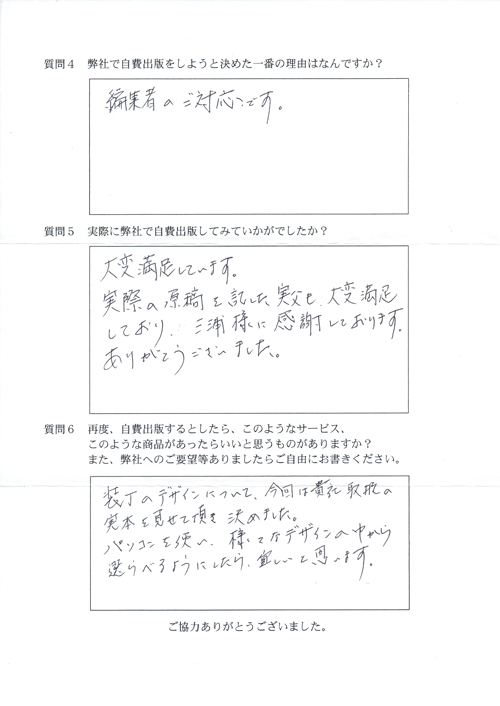 質問4 弊社で自費出版をしようと決めた一番の理由はなんですか?
編集者のご対応です。
質問5 実際に弊社で自費出版してみていかがでしたか?
大変満足しています。
実際の原稿を記した実父も、大変満足
しており、三浦様に感謝しております。
ありがとうございました。
質問6 再度、自費出版するとしたら、このようなサービス、
このような商品があったらいいと思うものがありますか?
また、弊社へのご要望等ありましたらご自由にお書きください。
装丁のデザインについて、今回は貴社取扱の
実本を見せて頂き決めました。
パソコンを使い、様々なデザインの中から
選らべるようにしたら、宜しいと思います。
ご協力ありがとうございました。